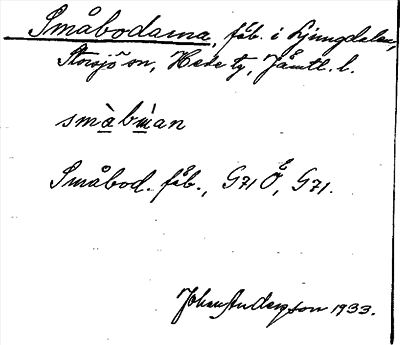 Småbodarna, fäb. i Ljungdalen,
Storsjö sn, Hede tg, Jämtl. l.
smàbu̇̀an
Småbod. fäb., G71 Ö, G71.
Johan Anderzson 1933.